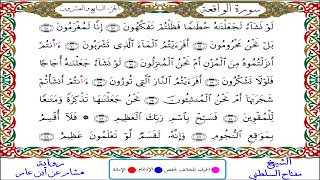 سورة الواقعة
الجزء السابع والعشرون
لَوْ نَشَاءُ لَجَعَلْنَٰهُ حُطَٰمًا فَظَلْتُمْ تَفَكَّهُونَ ۝ إِنَّا لَمُغْرَمُونَ ۝
بَلْ نَحْنُ مَحْرُومُونَ ۝ أَفَرَءَيْتُمُ الْمَاءَ الَّذِى تَشْرَبُونَ ۝ ءَأَنتُمْ
أَنزَلْتُمُوهُ مِنَ الْمُزْنِ أَمْ نَحْنُ الْمُنزِلُونَ ۝ لَوْ نَشَاءُ جَعَلْنَٰهُ أُجَاجًا
فَلَوْلَا تَشْكُرُونَ ۝ أَفَرَءَيْتُمُ النَّارَ الَّتِى تُورُونَ ۝ ءَأَنتُمْ أَنشَأْتُمْ
شَجَرَتَهَا أَمْ نَحْنُ الْمُنشِئُونَ ۝ نَحْنُ جَعَلْنَٰهَا تَذْكِرَةً وَمَتَٰعًا
لِّلْمُقْوِينَ ۝ فَسَبِّحْ بِاسْمِ رَبِّكَ الْعَظِيمِ ۝ ۞ فَلَا أُقْسِمُ
بِمَوَٰقِعِ النُّجُومِ ۝ وَإِنَّهُ لَقَسَمٌ لَّوْ تَعْلَمُونَ عَظِيمٌ ۝
الشيخ
مفتاح السلطني
رواية
هشام عن ابن عامر
الإدغام
الإمالة